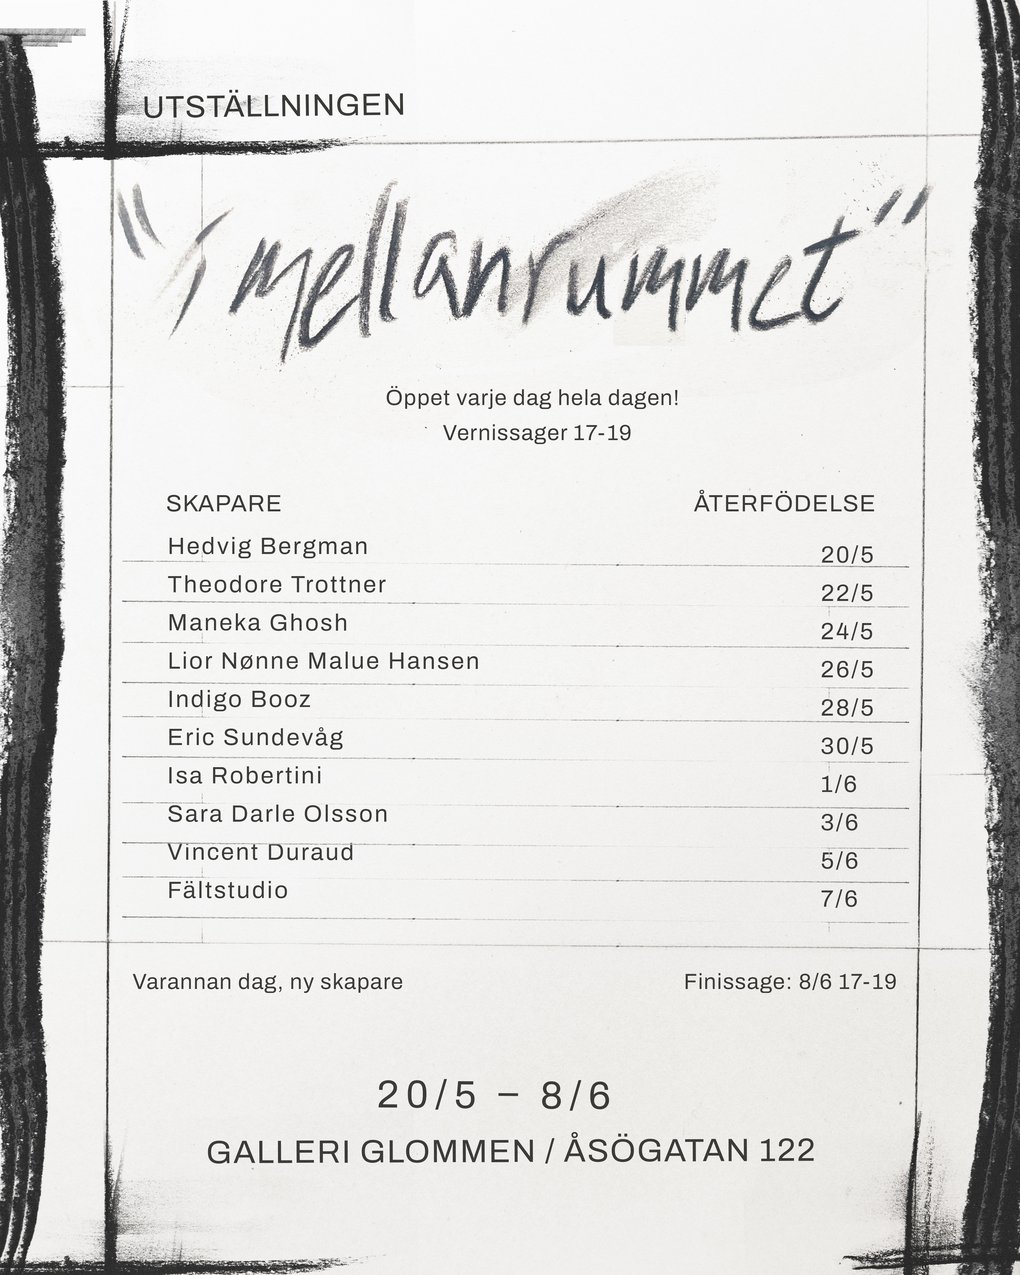 UTSTÄLLNINGEN
"i mellanrummet"
Öppet varje dag hela dagen!
Vernissager 17-19
SKAPARE ÅTERFÖDELSE
Hedvig Bergman 20/5
Theodore Trottner 22/5
Maneka Ghosh 24/5
Lior Nønne Malue Hansen 26/5
Indigo Booz 28/5
Eric Sundevåg 30/5
Isa Robertini 1/6
Sara Darle Olsson 3/6
Vincent Duraud 5/6
Fältstudio 7/6
Varannan dag, ny skapare Finissage: 8/6 17-19
20/5 – 8/6
GALLERI GLOMMEN / ÅSÖGATAN 122